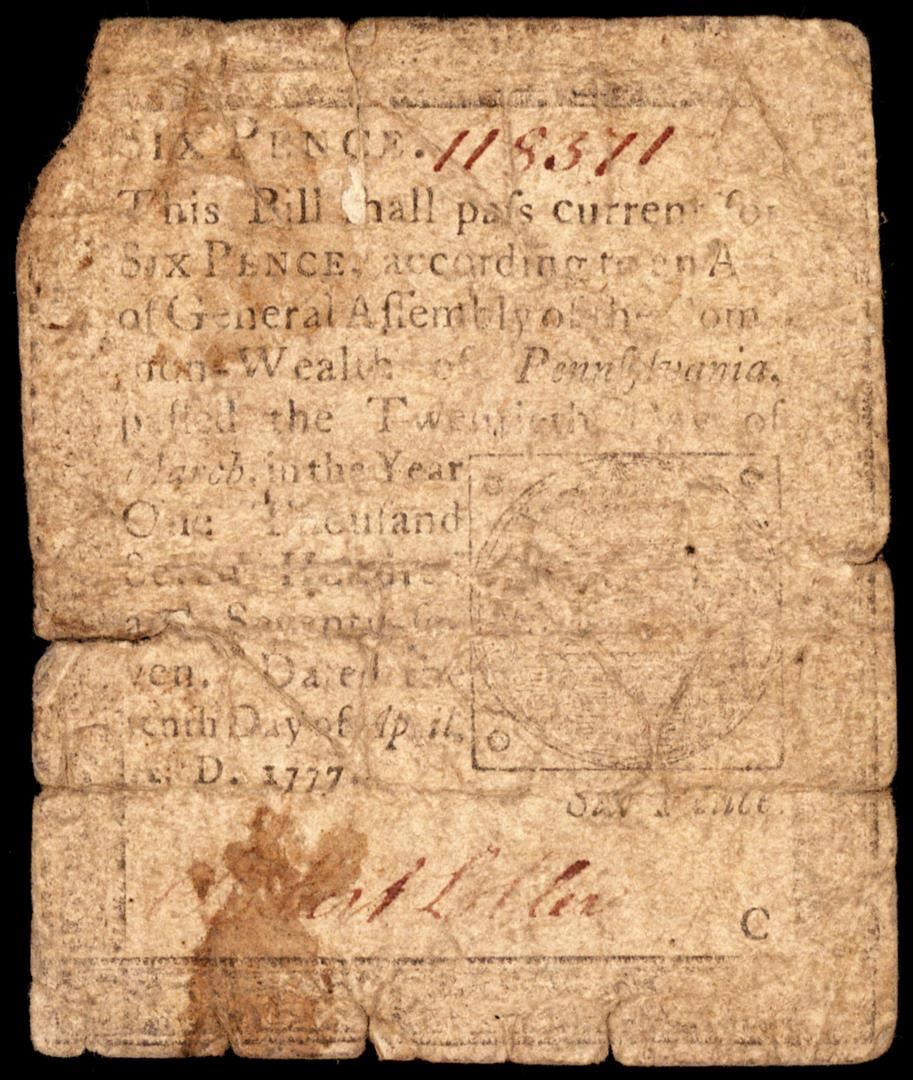 SIX PENCE. 118371
This Bill shall paſs current for
SIX PENCE, according to an A
of General Aſſembly of the Com
mon-Wealth of Pennſylvania,
paſſed the Twentieth Day of
March, in the Year
One Thouſand
Seven Hundred
and Seventy-ſe-
ven. Dated the
tenth Day of April,
A. D. 1777.
Six Pence.
C